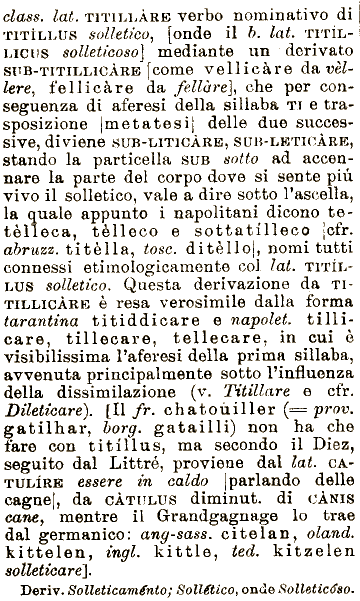 class. lat. TITILLÀRE verbo nominativo di
TITÍLLUS solletico, [onde il b. lat. TITIL-
LICUS solleticoso] mediante un derivato
SUB-TITILLICÀRE [come vellicàre da vèl-
lere, fellicàre da fellàre], che per con-
seguenza di aferesi della sillaba TI e tra-
sposizione |metatesi| delle due succes-
sive, diviene SUB-LITICÀRE, SUB-LETICÀRE,
stando la particella SUB sotto ad accen-
nare la parte del corpo dove si sente più
vivo il solletico, vale a dire sotto l'ascella,
la quale appunto i napolitani dicono te-
tèlleca, tèlleco e sottatílleco |cfr.
abruzz. titèlla, tosc. ditèllo|, nomi tutti
connessi etimologicamente col lat. TITÍL-
LUS solletico. Questa derivazione da TI-
TILLICÀRE è resa verosimile dalla forma
tarantina titiddicare e napolet. tilli-
care, tillecare, tellecare, in cui è
visibilissima l'aferesi della prima sillaba,
avvenuta principalmente sotto l'influenza
della dissimilazione (v. Titillare e cfr.
Dileticare). [Il fr. chatouiller (= prov.
gatilhar, borg. gatailli) non ha che
fare con titíllus, ma secondo il Diez,
seguito dal Littré, proviene dal lat. CA-
TULÍRE essere in caldo |parlando delle
cagne|, da CÀTULUS diminut. di CÀNIS
cane, mentre il Grandgagnage lo trae
dal germanico: ang-sass. citelan, oland.
kittelen, ingl. kittle, ted. kitzelen
solleticare].
Deriv. Solleticaménto; Sollético, onde Solleticóso.